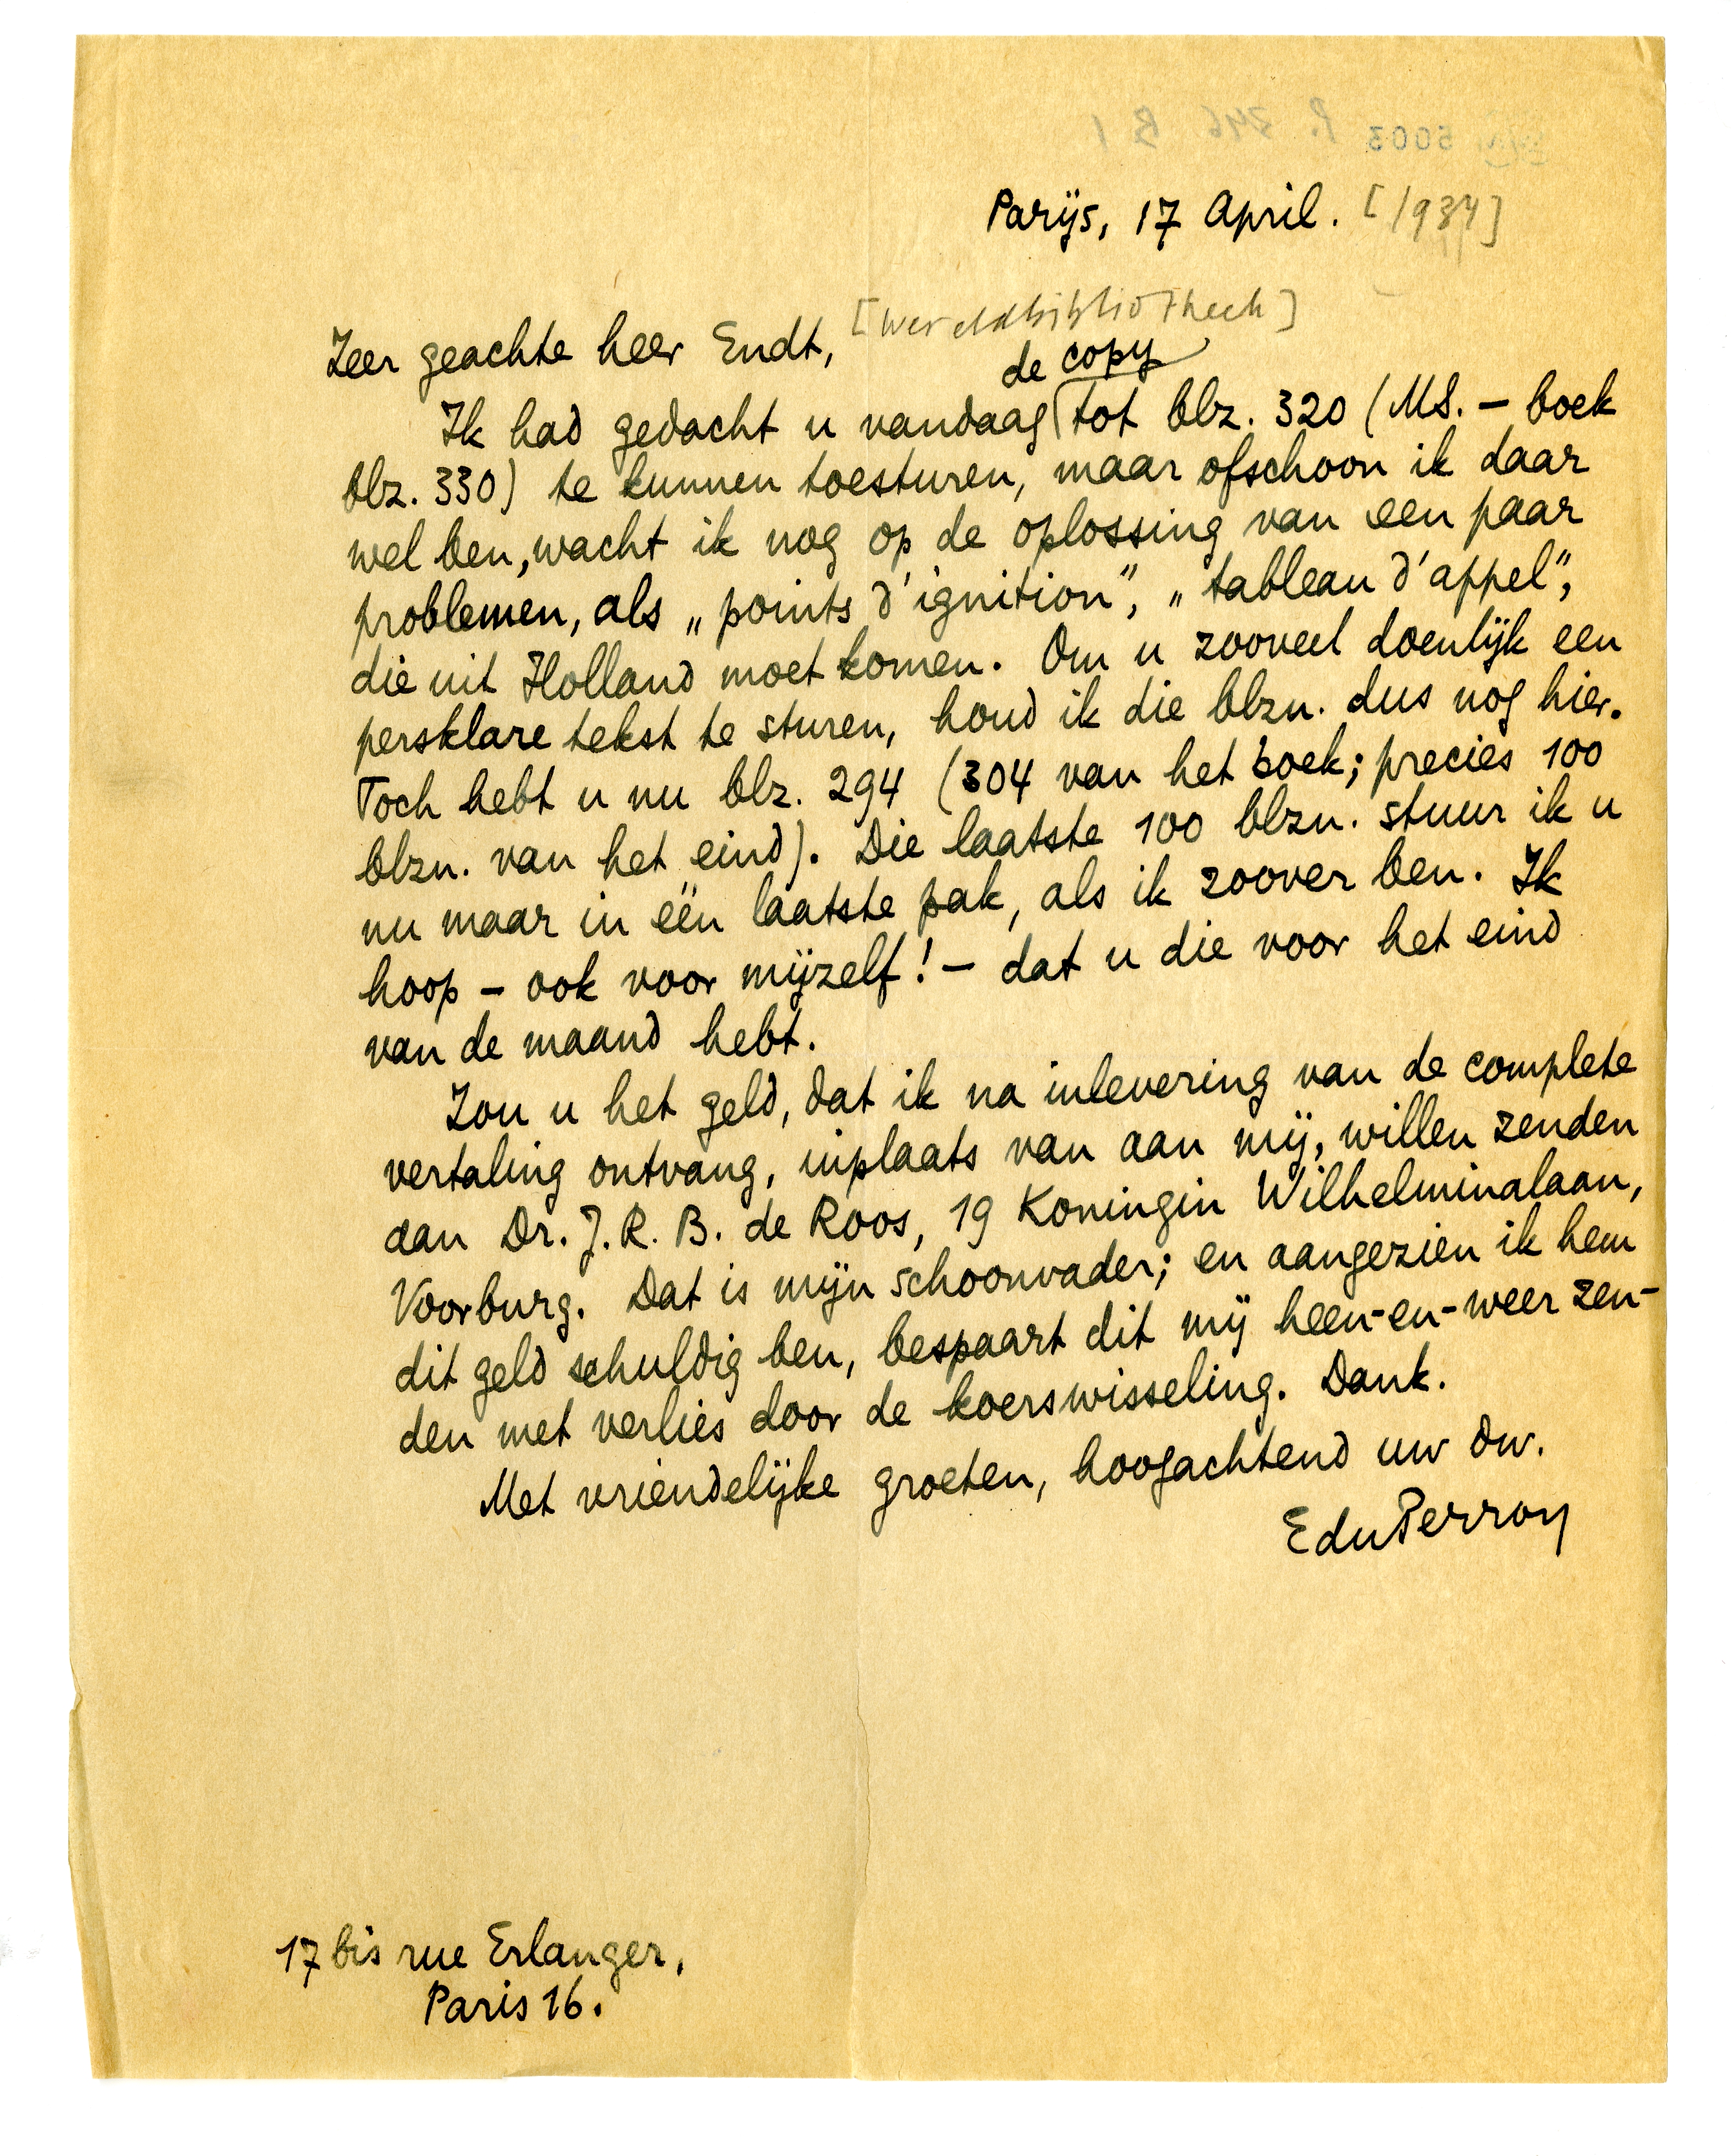 Parijs, 17 April. [1934]
Zeer geachte heer Endt, [Wereldbibliotheek]
de copy
Ik had gedacht u vandaag tot blz. 320 (MS. — boek
blz. 330) te kunnen toesturen, maar ofschoon ik daar
wel ben, wacht ik nog op de oplossing van een paar
problemen, als „points d'ignition", „tableau d'appel",
die uit Holland moet komen. Om u zooveel doenlijk een
persklare tekst te sturen, houd ik die blzn. dus nog hier.
Toch hebt u nu blz. 294 (304 van het boek; precies 100
blzn. van het eind). Die laatste 100 blzn. stuur ik u
nu maar in één laatste pak, als ik zoover ben. Ik
hoop — ook voor mijzelf! — dat u die voor het eind
van de maand hebt.
Zou u het geld, dat ik na inlevering van de complete
vertaling ontvang, inplaats van aan mij, willen zenden
aan Dr. J. R. B. de Roos, 19 Koningin Wilhelminalaan,
Voorburg. Dat is mijn schoonvader; en aangezien ik hem
dit geld schuldig ben, bespaart dit mij heen-en-weer zen-
den met verlies door de koerswisseling. Dank.
Met vriendelijke groeten, hoogachtend uw dw.
EduPerron
17 bis rue Erlanger,
Paris 16.